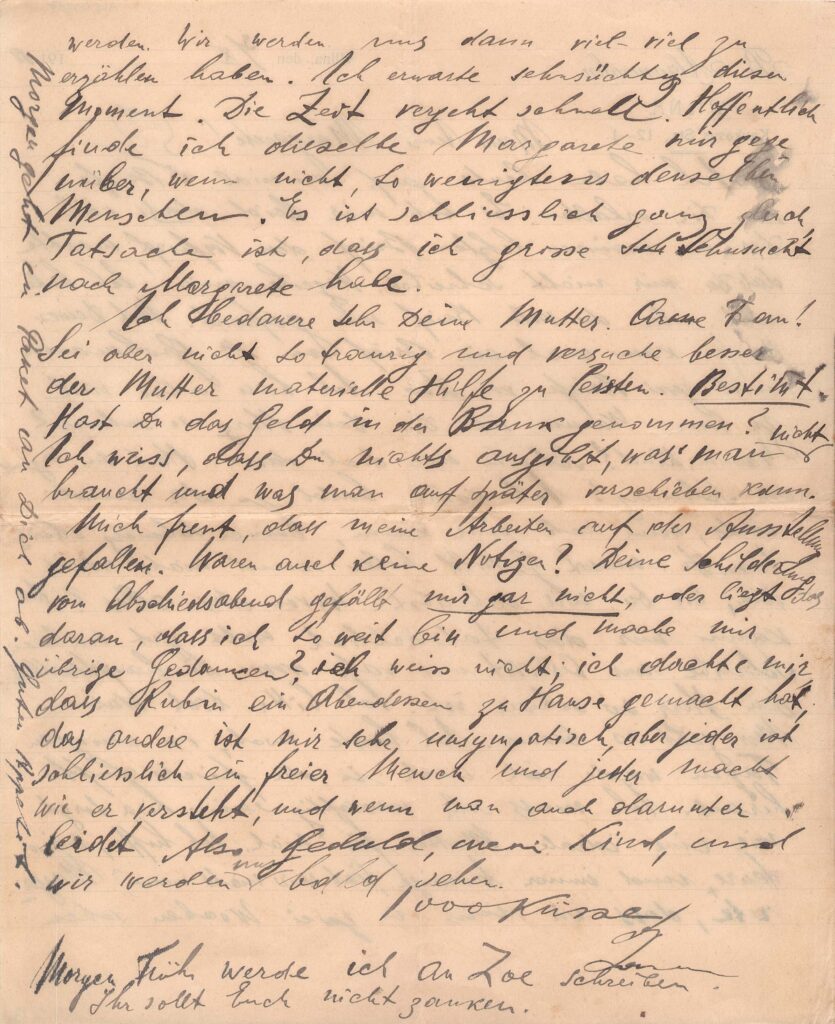 werden. Wir werden uns dann viel-viel zu
erzählen haben. Ich erwarte sehnsüchtig diesen
Moment. Die Zeit vergeht schnell. Hoffentlich
finde ich dieselbe Margarete mir gege
nüber, wenn nicht, so wenigstens denselben
Menschen. Es ist schliesslich ganz gleich
Tatsache ist, dass ich grosse Sehnsucht
nach Margarete habe.
Ich bedauere sehr Deine Mutter. Arme Frau!
Sei aber nicht so traurig und versuche besser
der Mutter materielle Hilfe zu leisten. Bestimt.
Hast Du das Geld in der Bank genommen?
Ich weiss, dass Du nichts ausgibst, was man nicht
braucht und was man auf später verschieben kann.
Mich freut, dass meine Arbeiten auf der Ausstellung
gefallen. Waren auch keine Notizen? Deine Schilderung
vom Abschiedsabend gefällt mir gar nicht, oder liegt das
daran, dass ich so weit bin und mache mir
übrige Gedanken? ich weiss nicht; ich dachte mir,
dass Rubin ein Abendessen zu Hause gemacht hat,
das andere ist mir sehr unsympatisch, aber jeder ist
schliesslich ein freier Mensch und jeder macht
wie er versteht, und wenn man auch darunter
leidet. Also Geduld, mein Kind, und
wir werden uns bald sehen.
1000 Küsse
Morgen Früh werde ich an Zoe schreiben.
Ihr sollt Euch nicht zanken.
Morgen geht ein Paket an Dich ab. Guten Appetit.